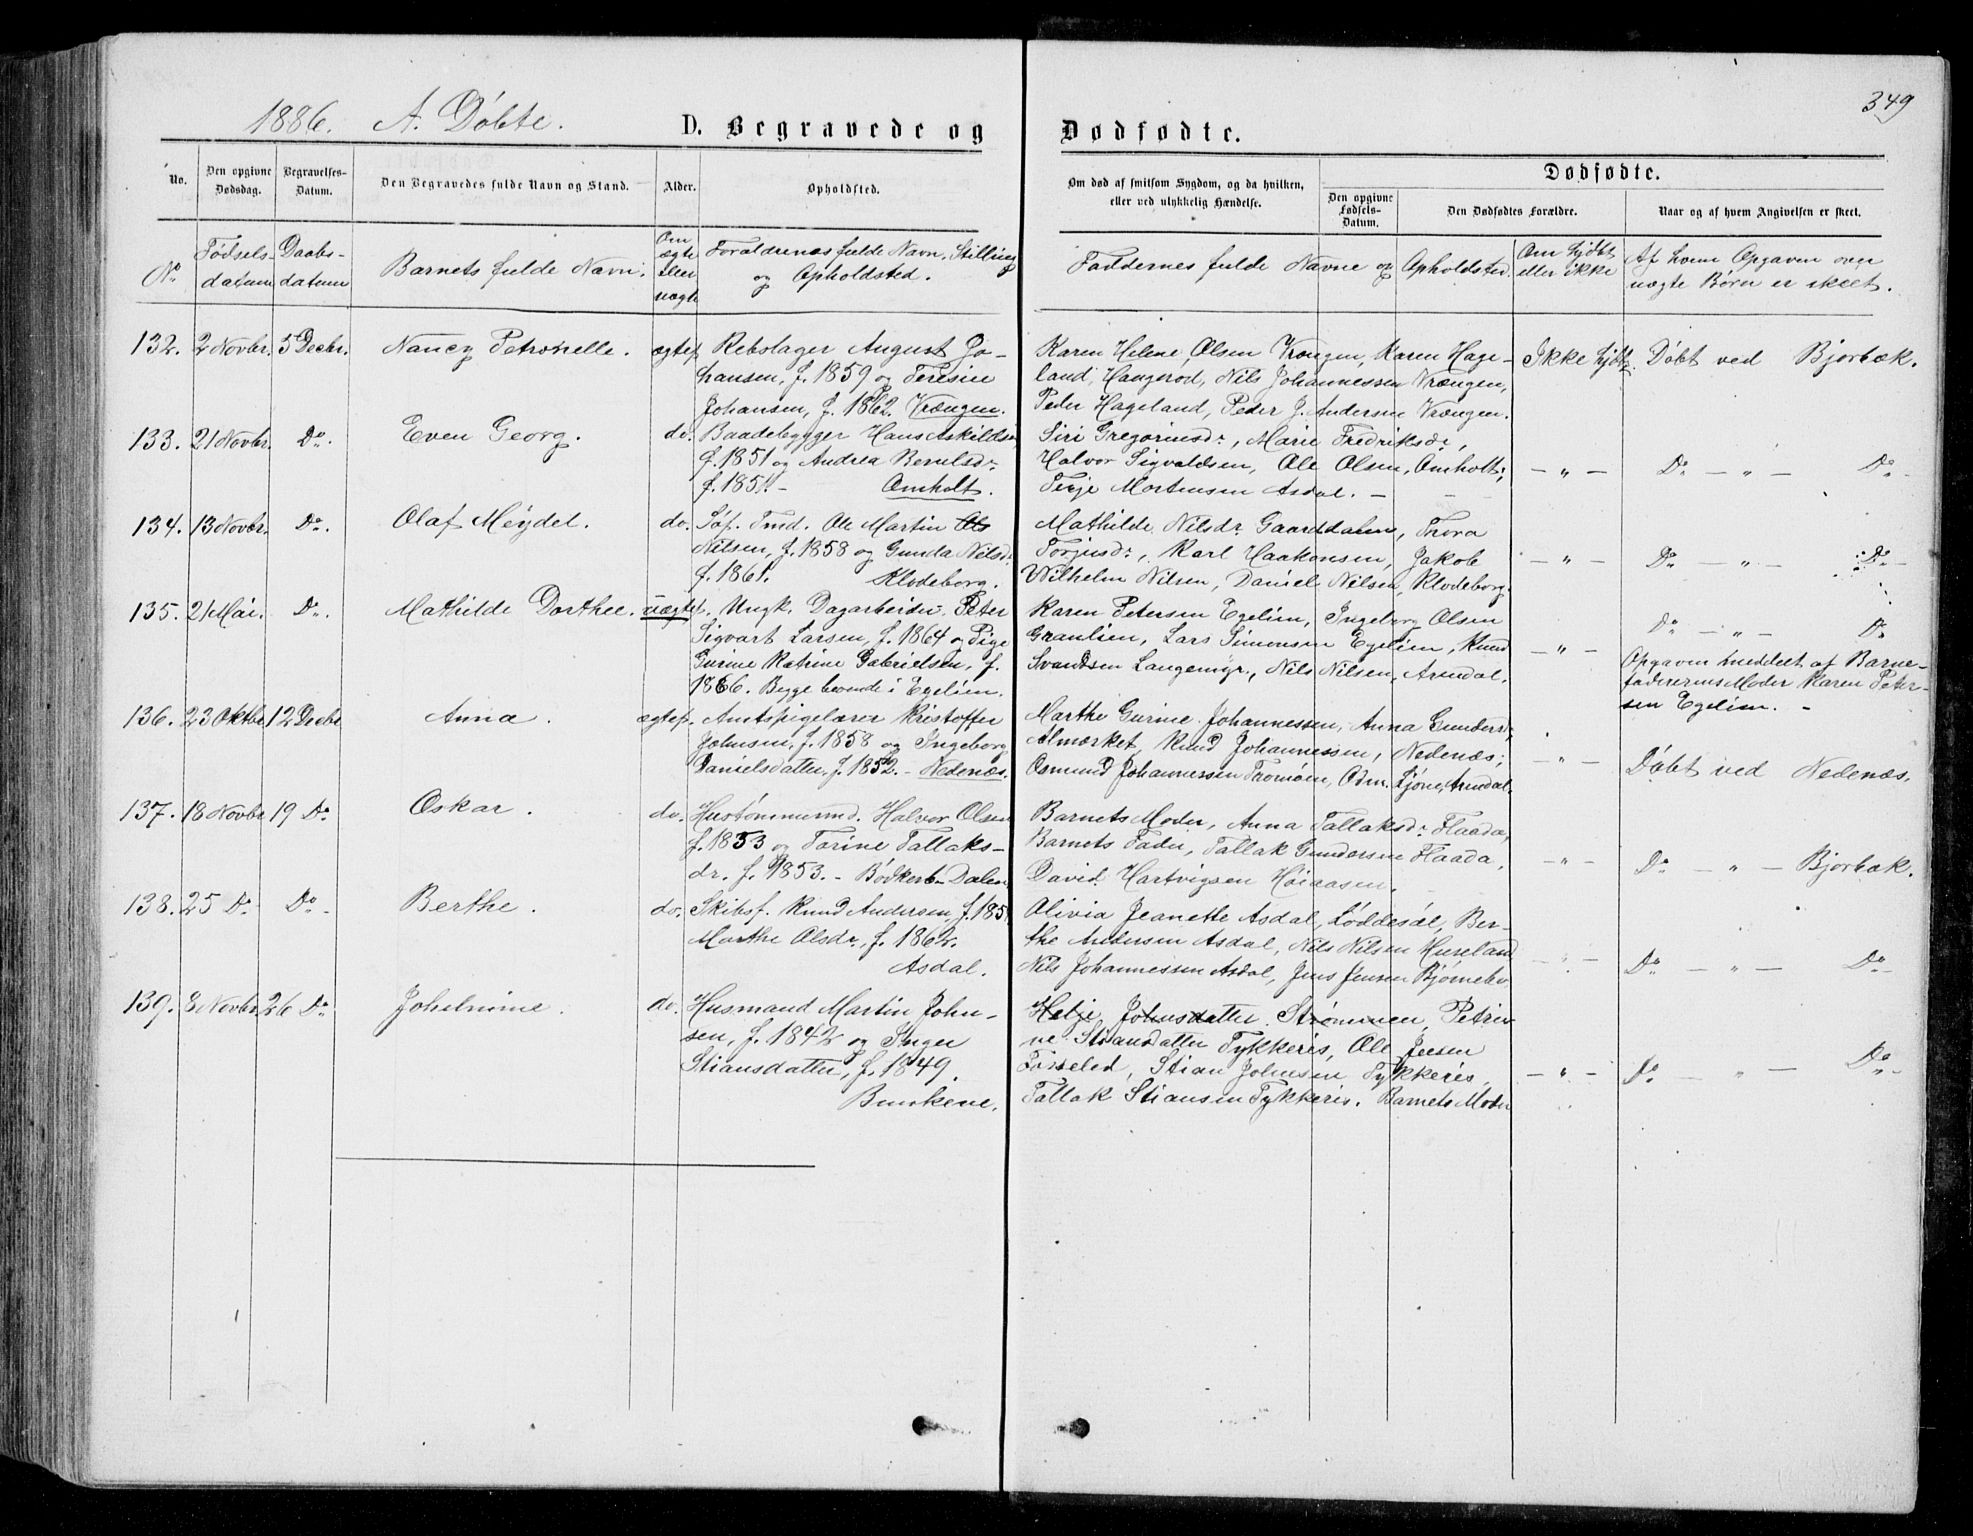 349
1886. A. Døbte.
D. Begravede og Dødfødte.
No.
Den opgivne Dødsdag.
Begravelses-Datum.
Den Begravedes fulde Navn og Stand.
Alder.
Opholdsted.
Om død af smitsom Sygdom, og da hvilken,
eller ved ulykkelig Hændelse.
Dødfødte.
Den opgivne Fødsels-Datum.
Den Dødfødtes Forældre.
Naar og af hvem Angivelsen er skeet.
No
Fødsels-
datum
Daabs-
datum
Barnets fulde Navn.
Om
ægte
eller
uægte
Forældrenes fulde Navn, Stilling
og Opholdsted.
Faddernes fulde Navne og Opholdsted.
Om hjdbt
eller ikke
Af hvem Opgaven over
uægte Børn er skeet.
132. 2 Novbr. 5 Decbr. Nancy Petronelle. ægtef. Rebslager August Jo-
hansen, f. 1859 og Teresine
Johansen, f. 1862. Vrængen.
Karen Helene Olsen Vrængen, Karen Hage-
land, Haugerod, Nils Johannessen Vrængen,
Peder Hageland, Peder J. Andersen Vrængen.
Ikke hjdbt. Døbt ved Bjorbæk.
133. 21 Novbr. Do. Even Georg. do. Baadebygger Hans Askildsen
f. 1851 og Andrea Berulsdr.
f. 1851. - Omholt.
Siri Gregoriusdr., Marie Fredriksdr.,
Halvor Sigvaldsen, Ole Olsen, Omholt;
Terje Mortensen Asdal. -
- " - Do - " - Do -
134. 13 Novbr. Do. Olaf Meydel. do. Søf. Tmd. Ole Martin Ols
Nilsen, f. 1858 og Gunda Nilsd.
f. 1861. Klodeborg.
Mathilde Nilsdr. Gaarddalen, Thora
Torjusdr., Karl Haakonsen, Jakob
Wilhelm Nilsen, Daniel Nilsen, Klodeborg.
- " - Do - " - Do -
135. 21 Mai. Do. Mathilde Dorthee. uægtef. Ungk. Dagarbeider Peter
Sigvart Larsen, f. 1864 og Pige
Gurine Katrine Gabrielsen, f.
1866. Begge boende i Egelien.
Karen Petersen Egelien, Ingeborg Olsen
Granlien, Lars Simonsen Egelien, Knud
Svendsen Langemyr., Nils Nilsen, Arendal.
- " - Do - " - Do
Opgaven meddelt af Barne-
faderens Moder Karen Peter-
sen Egelien. -
136. 23 Oktbr 12 Decbr Anna. ægtef. Amtspigelærer Kristoffer
Johnsen, f. 1858 og Ingeborg
Danielsdatter f. 1852. - Nedenæs.
Marthe Gurine Johannessen, Anna Gundersd.
Almarket, Knud Johannessen, Nedenæs;
Osmund Johannessen Tromøen, Odm. Kjøne, Arendal.
- " - Døbt ved Nedenæs.
137. 18 Novbr 19 Do Oskar. do. Hustømmermd. Halvor Olsen
f. 1853 og Torine Tallaks-
dr. f. 1853. - Dalen
Barnets Moder, Anna Tallaksdr. Flaada,
Barnets Fader, Tallak Gundersen Flaada,
David Hartvigsen Høiaasen.
- " - Do - " - Bjorbæk.
138. 25 Do. Do - Berthe. do. Skibsf. Knud Andersen, f. 185
Marthe Olsdr., f. 1862.
Asdal.
Olivia Jeanette Asdal, Løddesøl, Ber-
the Andersen Asdal, Nils Nilsen Huseland
Nils Johannessen Asdal, Jens Jensen
- " - Do - " - Do -
139. 8 Novbr. 26 Do Johelmine. do. Husmand Martin John-
sen, f. 1842 og Inger
Stiansdatter, f. 1849.
Buskene.
Helje Johnsdatter Strømmen, Petrin-
ne Stiansdatter Tykkeris, Ole Jensen
Stian Johnsen Tykkeris,
Tallak Stiansen Tykkeris. Barnets Moder
- " - Do - " - Do -